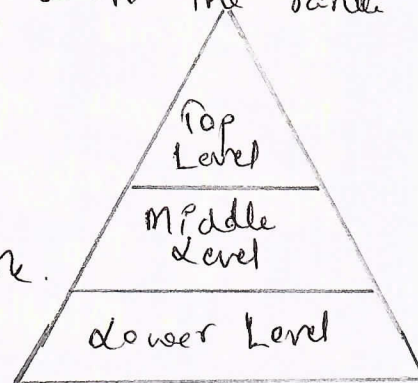 the
Top
Level
Middle
Level
Lower Level